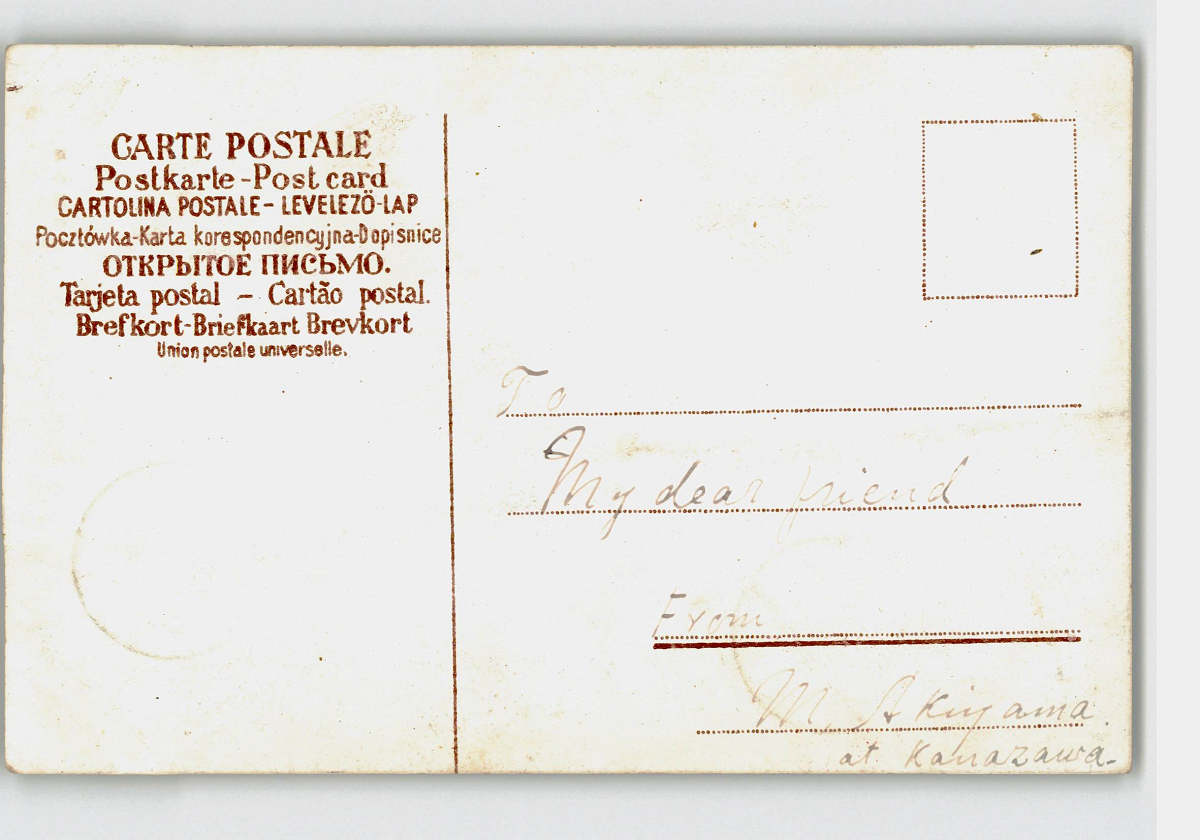 CARTE POSTALE
Postkarte-Post card
CARTOLINA POSTALE-LEVELEZÖ-LAP
Pocztówka-Karta korespondencyjna-Dopisnice
ОТКРЫТОЕ ПИСЬМО.
Tarjeta postal - Cartão postal.
Brefkort-Briefkaart Brevkort
Union postale universelle.
To
My dear friend
From
M. Akiyama.
at. Kanazawa-